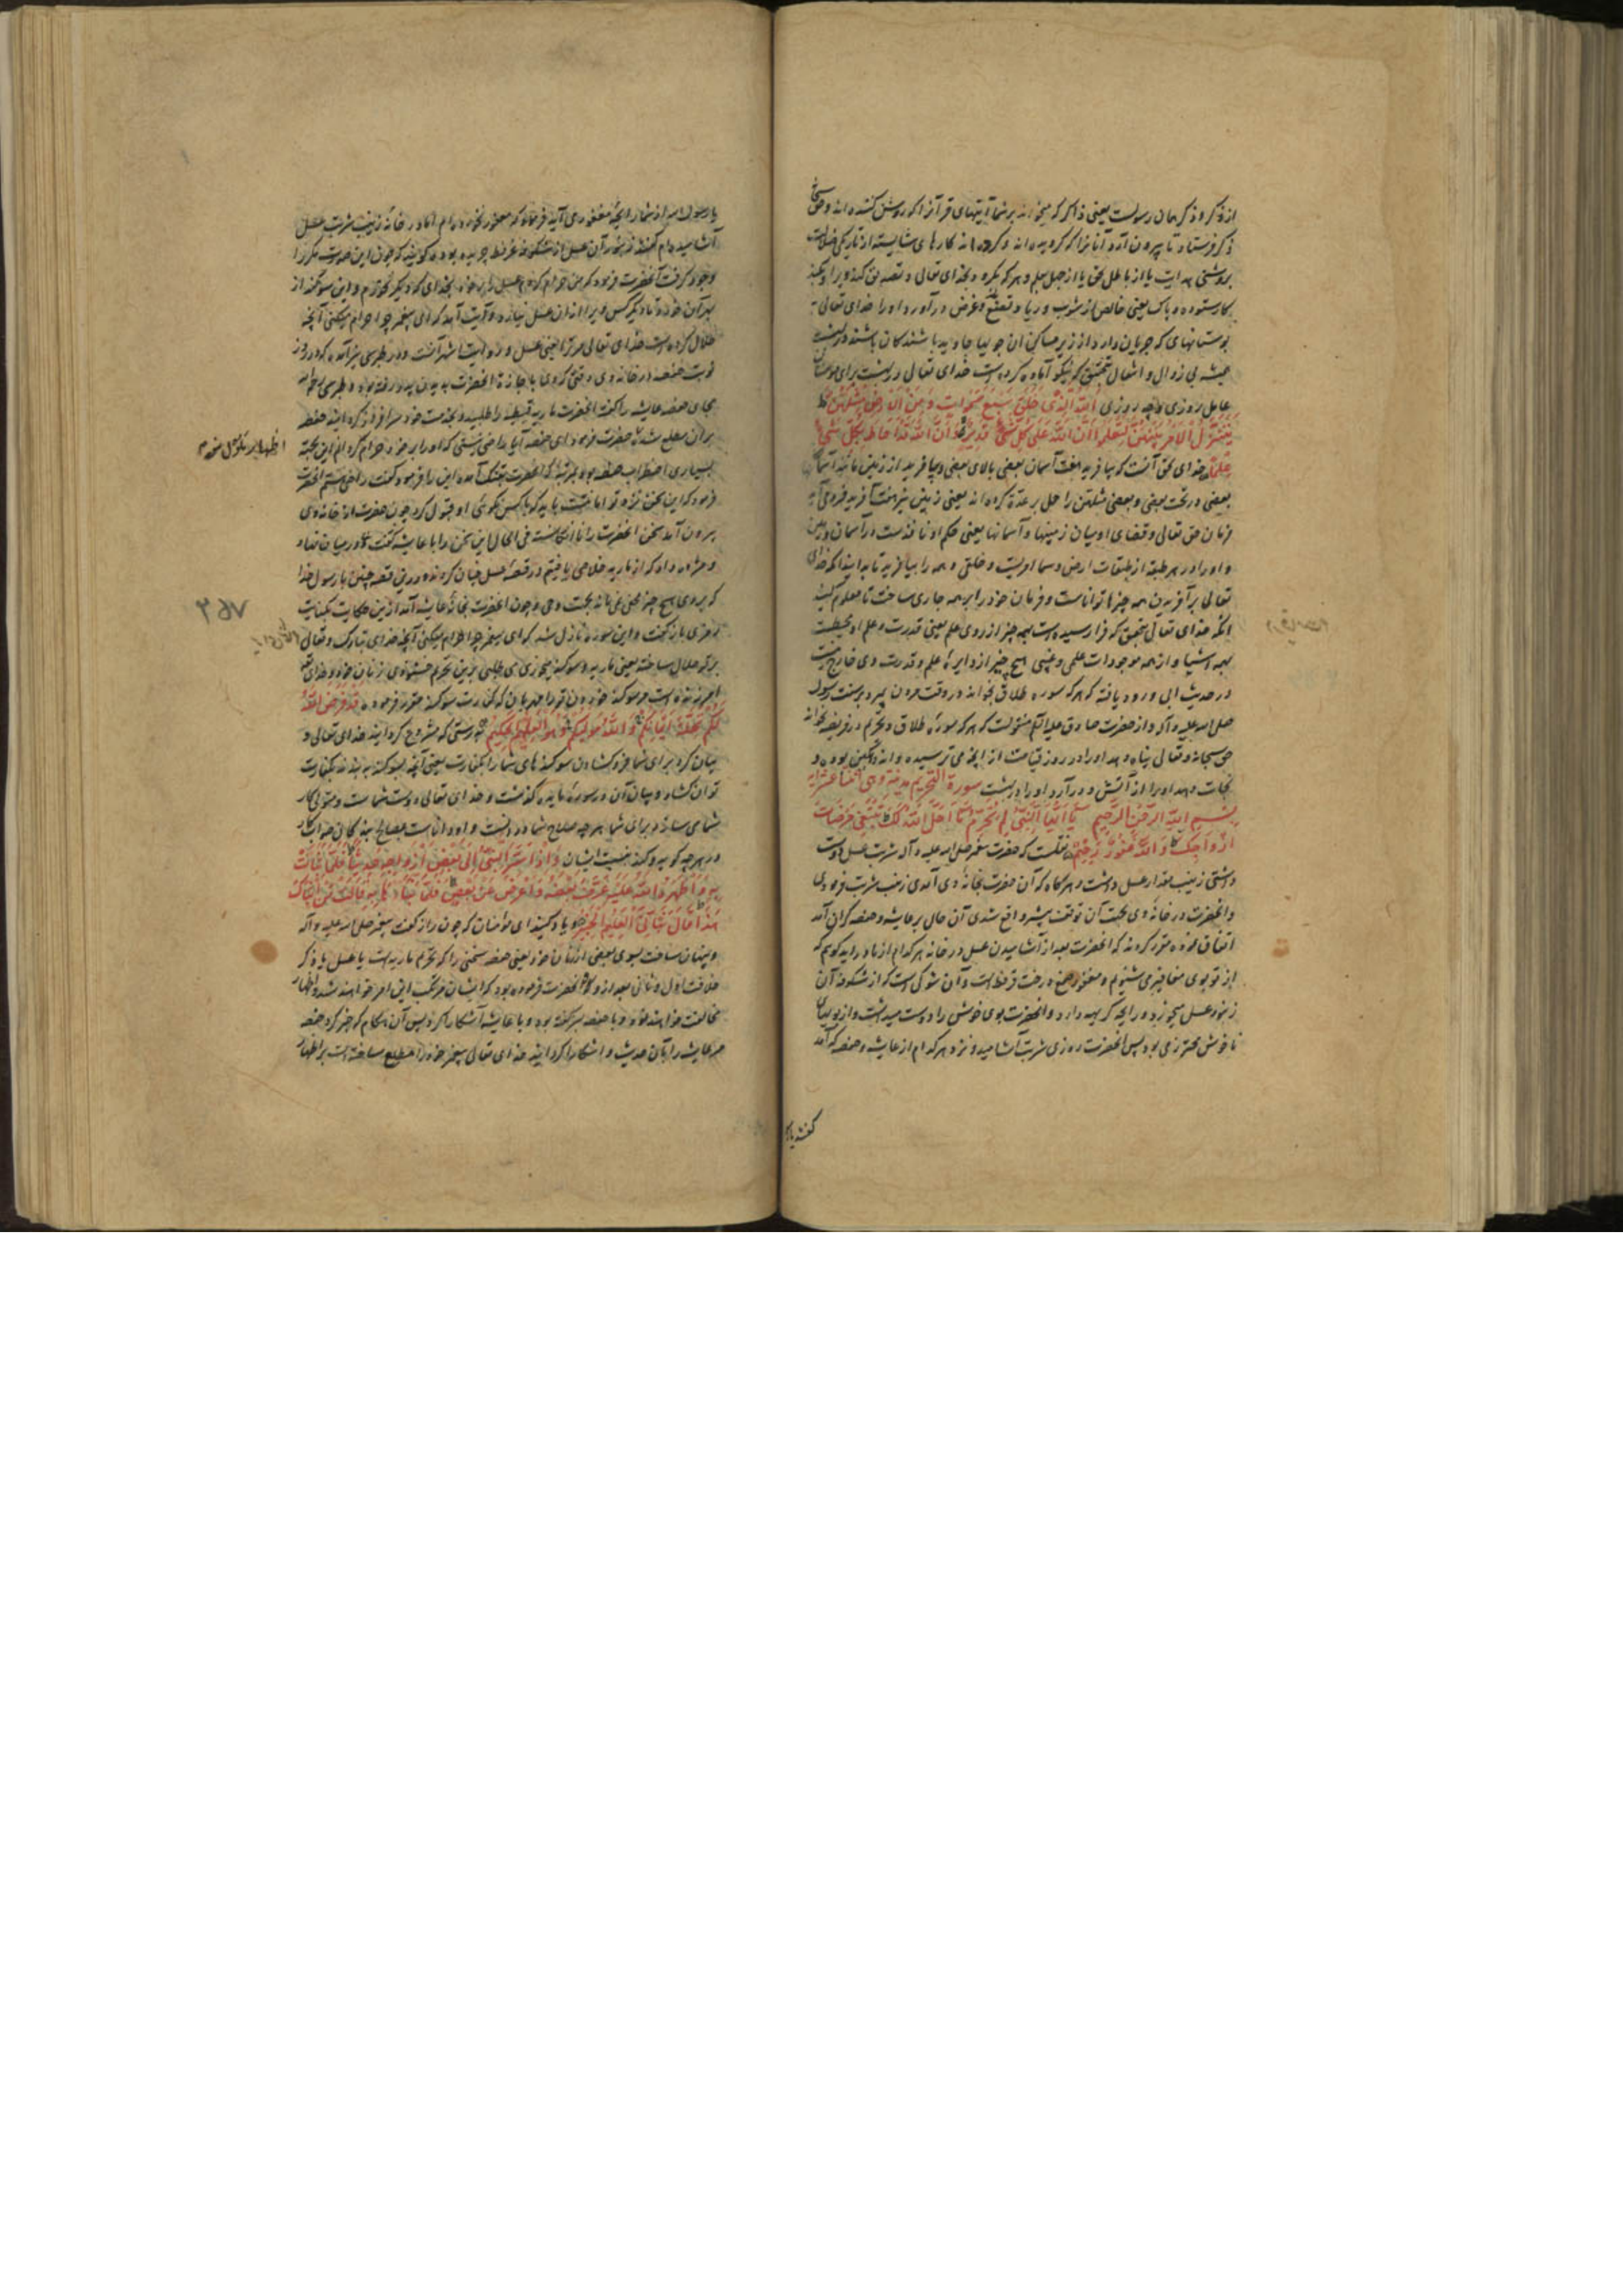 از ذکر و ذکر همان رسولست یعنی ذاکر که میخواند بر شما آیتهای قرآن را که روشن کننده‌اند و حق سبحانه
ذکر فرستاد تا بیرون آرد آنانرا که گرویده‌اند و کرده‌اند کارهای شایسته از تاریکی ضلالت
بروشنی هدایت یا از باطل بحق یا از جهل بعلم و هر که بگرود بخدای تعالی و تصدیق کند ویرا و بکند
کار ستوده و پاک یعنی خالص از شوب و ریا و تصنع و غرض در آورد او را خدای تعالی
بوستانهای که جریان دارد از زیر مساکن آن جویها جاوید باشندگان باشند در بهشت
همیشه بی زوال و انتقال بتحقیق که نیکو آماده کرده است خدای تعالی در بهشت برای مومنان
عامل روزی و چه روزی اَللّهُ الَّذی خَلَقَ سَبعَ سَمواتٍ وَ مِنَ الاَرضِ مِثلَهُنَّ ط
یَتَنَزَّلُ الاَمرُ بَینَهُنَّ لِتَعلَموا اَنَّ اللّهَ عَلی کُلِّ شَیءٍ قَدیرٌ وَ اَنَّ اللّهَ قَد اَحاطَ بِکُلِّ شَیءٍ
عِلماً خدای بحق آنست که بیافرید هفت آسمان بعضی بالای بعضی و بیافرید از زمین مانند آسمان
بعضی در تحت بعضی و بعضی مثلهن را حمل بر عدد کرده‌اند یعنی زمین نیز هفت آفرید فرود می‌آید
فرمان حق تعالی و قضای او میان زمینها و آسمانها یعنی حکم او نافذست در آسمان و زمین
و او را در هر طبقه از طبقات ارض و سما امریست و خلقی و همه را بیافرید تا بدانید آنکه خدای
تعالی بر آفریدن همه چیزها تواناست و فرمان خود را بر همه جاری ساخت تا معلوم کنید
آنکه خدای تعالی بتحقیق که فرا رسیده است بهمه چیز از روی علم یعنی قدرت و علم او محیطست
بهمه اشیا و از همه موجودات علمی و عینی هیچ چیز از دایره علم و قدرت وی خارج نیست
در حدیث ابی ورود یافته که هر که سوره طلاق بخواند در وقت مردن بمیرد بر سنت رسول
صلی الله علیه و آله و از حضرت صادق علیه السلام منقولست که هر که سوره طلاق و تحریم در فریضه بخواند
حق سبحانه و تعالی پناه دهد او را در روز قیامت از آنچه می ترسیده و اندوهگین بوده و
نجات دهد او را از آتش و در آرد او را در بهشت سورة التحریم مدنیة وهی اثنا عشر آیة
بِسمِ اللّهِ الرَّحمنِ الرَّحیمِ یا اَیُّهَا النَّبیُّ لِمَ تُحَرِّمُ ما اَحَلَّ اللّهُ لَکَ تَبتَغی مَرضاتَ
اَزواجِکَ وَ اللّهُ غَفورٌ رَحیمٌ نقلست که حضرت پیغمبر صلی الله علیه و آله شربت عسل دوست
داشتی زینب مقدار عسل داشت و هر گاه که آن حضرت بخانه وی آمدی زینب شربت فرمودی
و آنحضرت در خانه وی بجهت آن توقف بیشتر واقع شدی آن حال بر عایشه و حفصه گران آمد
اتفاق نموده مقرر کردند که آنحضرت بعد از آشامیدن عسل در خانه هر کدام از ما در آید گویم که
از تو بوی مغافیر می شنوم و مغفور صمغ درخت عرفط است و آن شوکی است که از شکوفه آن
زنبور عسل میخورد و رایحه کریهه دارد و آنحضرت بوی خوش را دوست میداشت و از بویهای
ناخوش محترز می بود پس آنحضرت روزی شربت آشامید و نزد هر کدام از عایشه و حفصه که آمد
گفتند یا
یا رسول الله از شما رایحه مغفور می آید فرمود که مغفور نخورده‌ام اما در خانه زینب شربت عسل
آشامیده‌ام گفتند زنبور آن عسل از شکوفه عرفط چریده بوده گویند که چون این صورت مکررا
وجود گرفت آنحضرت فرمود که من حرام کردم عسل را بر خود بخدای که دیگر نخورم و این سوگند از
برای آن خورد تا دیگر کس ویرا از آن عسل نیارد و آیت آمد که ای پیغمبر چرا حرام میکنی آنچه
حلال کرده است خدای تعالی مر ترا یعنی عسل و روایت اشهر آنست و در طبرسی نیز آمده که در روز
نوبت حفصه در خانه وی وقتی که وی باجازه آنحضرت بدیدن پدر رفته بود و طبرسی رحمه الله
بجای حفصه عایشه را گفت آنحضرت ماریه قبطیه را طلبید و بخدمت خود سرافراز گردانید حفصه
بر آن مطلع شده حضرت فرمود ای حفصه آیا راضی نیستی که او را بر خود حرام گردانم این بجهت
بسیاری اضطراب حفصه بود بمرتبه که آنحضرت بتنگ آمده این را فرمود گفت راضی هستم آنحضرت
فرمود که این سخن نزد تو امانتست باید که با کس نگوئی او قبول کرد چون حضرت از خانه وی
بیرون آمد سخن آنحضرت را نا انگاشته فی الحال این سخن را با عایشه گفت و در میان نهاد
و مژده داد که از ماریه خلاصی یافتیم و در قصه عسل خیان کردند و در این قصه چنین با رسول خدا
که بر وی هیچ چیز مخفی نمی ماند بجهت وحی و چون آنحضرت بخانه عایشه آمد ازین حکایت بکنایت
رمزی باز گفت و این سوره نازل شد که ای پیغمبر چرا حرام میکنی آنچه خدای تبارک و تعالی
بر تو حلال ساخته یعنی ماریه و سوگند میخوری می طلبی بدین تحریم خشنودی زنان خود و خدای تعالی
آمرزنده است مر سوگند خوردن ترا مهربان که کفارت سوگند مقرر فرموده قَد فَرَضَ اللّهُ
لَکُم تَحِلَّةَ اَیمانِکُم وَ اللّهُ مَولیکُم وَ هُوَ العَلیمُ الحَکیمُ بدرستی که مشروع گردانید خدای تعالی و
بیان کرد برای شما فرو گشادن سوگندهای شما را بکفارت یعنی آنچه بسوگند به بندند بکفارت
توان گشاد و بیان آن در سوره مایده گذشت و خدای تعالی دوست شماست و متولی کار
شما می سازد برای شما هر چه صلاح شما در آنست و او داناست بمصالح بندگان صواب کار
در هر چه گوید و کند نسبت ایشان وَ اِذ اَسَرَّ النَّبیُّ اِلی بَعضِ اَزواجِهِ حَدیثاً فَلَمّا نَبَّاَت
بِهِ وَ اَظهَرَهُ اللّهُ عَلَیهِ عَرَّفَ بَعضَهُ وَ اَعرَضَ عَن بَعضٍ فَلَمّا نَبَّاَها بِهِ قالَت مَن اَنبَاَکَ
هذا قالَ نَبَّاَنِیَ العَلیمُ الخَبیرُ و یاد کنید ای مومنان که چون راز گفت پیغمبر صلی الله علیه و آله
و پنهان ساخت بسوی بعضی از زنان خود یعنی حفصه سخنی را که تحریم ماریه است یا عسل یا ذکر
خلافت اول و ثانی بعد از و که آنحضرت فرموده بود که ایشان مرتکب این امر خواهند شد و اظهار
مخالفت خواهند نمود و با حفصه سر گفته بود و با عایشه آشکارا کرد پس آن هنگام که خبر کرد حفصه
مر عایشه را بآن حدیث و آشکارا گردانید خدای تعالی پیغمبر خود را مطلع ساخته است بر اظهار